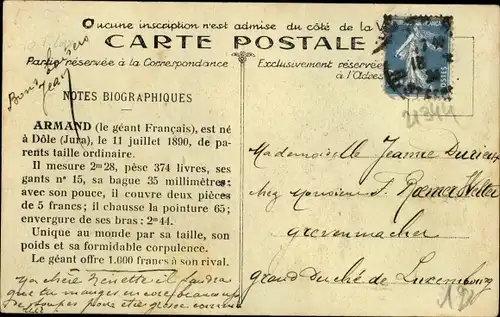 Aucune inscription n'est admise du côté de la
CARTE POSTALE
Partie réservée à la Correspondance
Exclusivement réservée
à l'Adres
Bons
Jean
NOTES BIOGRAPHIQUES
ARMAND (le géant Français), est né
à Dôle (Jura), le 11 juillet 1890, de pa-
rents taille ordinaire.
Il mesure 2m28, pèse 374 livres, ses
gants nº 15, sa bague 35 millimètres:
avec son pouce, il couvre deux pièces
de 5 francs; il chausse la pointure 65;
envergure de ses bras: 2m44.
Unique au monde par sa taille, son
poids et sa formidable corpulence.
Le géant offre 1.000 francs à son rival.
Ma chère Ninette il faudra
que tu manges encore beaucoup
de soupes pour être grosse comme
lui!
21344
Mademoiselle Jeanne Durieux
chez Monsieur J. Roemer Welter
Grevenmacher
Grand Duché de Luxembourg